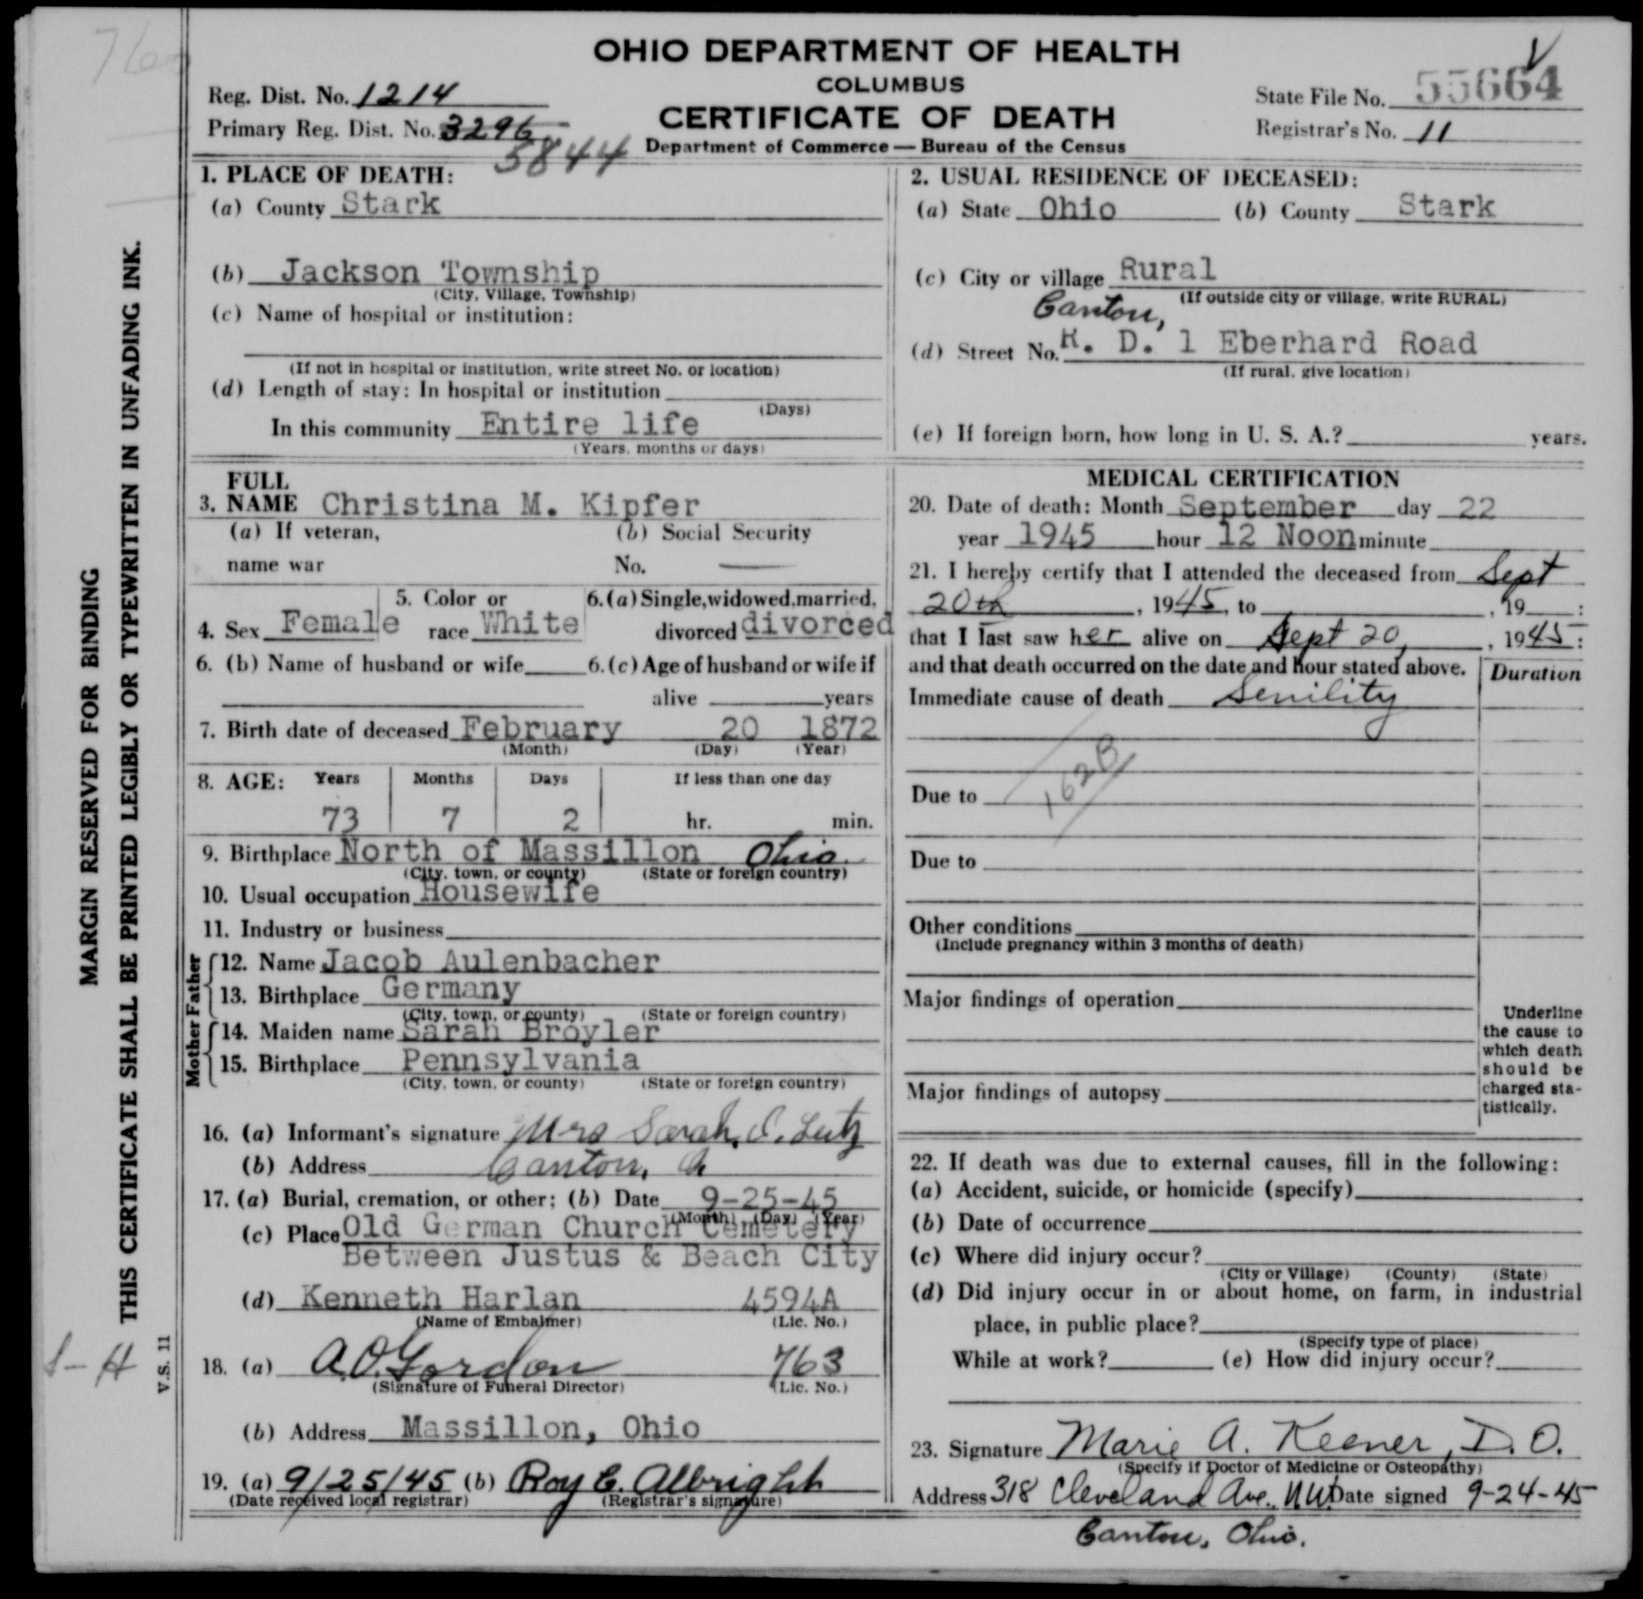 OHIO DEPARTMENT OF HEALTH
COLUMBUS
CERTIFICATE OF DEATH
Department of Commerce — Bureau of the Census
Reg. Dist. No. 1214
Primary Reg. Dist. No. 3296
5844
State File No. 55664
Registrar's No. 11
1. PLACE OF DEATH:
(a) County Stark
(b) Jackson Township
(City, Village, Township)
(c) Name of hospital or institution:
(If not in hospital or institution, write street No. or location)
(d) Length of stay: In hospital or institution
(Days)
In this community Entire life
(Years, months or days)
2. USUAL RESIDENCE OF DECEASED:
(a) State Ohio (b) County Stark
(c) City or village Rural
(If outside city or village, write RURAL)
Canton,
(d) Street No. R. D. 1 Eberhard Road
(If rural, give location)
(e) If foreign born, how long in U. S. A.? years.
FULL
3. NAME Christina M. Kipfer
(a) If veteran, (b) Social Security
name war No.
5. Color or 6. (a) Single, widowed, married,
4. Sex Female race White divorced divorced
6. (b) Name of husband or wife 6. (c) Age of husband or wife if
alive years
7. Birth date of deceased February 20 1872
(Month) (Day) (Year)
8. AGE: Years Months Days If less than one day
73 7 2 hr. min.
9. Birthplace North of Massillon Ohio
(City, town, or county) (State or foreign country)
10. Usual occupation Housewife
11. Industry or business
Father
12. Name Jacob Aulenbacher
13. Birthplace Germany
(City, town, or county) (State or foreign country)
Mother
14. Maiden name Sarah Broyler
15. Birthplace Pennsylvania
(City, town, or county) (State or foreign country)
16. (a) Informant's signature Mrs Sarah
(b) Address Canton, O
17. (a) Burial, cremation, or other; (b) Date 9-25-45
(Month) (Day) (Year)
(c) Place Old German Church Cemetery
Between Justus & Beach City
(d) Kenneth Harlan 4594A
(Name of Embalmer) (Lic. No.)
18. (a) A.O. Gordon 763
(Signature of Funeral Director) (Lic. No.)
(b) Address Massillon, Ohio
19. (a) 9/25/45 (b) Roy C. Albright
(Date received local registrar) (Registrar's signature)
MEDICAL CERTIFICATION
20. Date of death: Month September day 22
year 1945 hour 12 Noon minute
21. I hereby certify that I attended the deceased from Sept
20th, 1945, to , 19 :
that I last saw her alive on Sept 20, , 1945:
and that death occurred on the date and hour stated above. Duration
Immediate cause of death Senility
162B
Due to
Due to
Other conditions
(Include pregnancy within 3 months of death)
Major findings of operation
Major findings of autopsy
Underline
the cause to
which death
should be
charged sta-
tistically.
22. If death was due to external causes, fill in the following:
(a) Accident, suicide, or homicide (specify)
(b) Date of occurrence
(c) Where did injury occur?
(City or Village) (County) (State)
(d) Did injury occur in or about home, on farm, in industrial
place, in public place?
(Specify type of place)
While at work? (e) How did injury occur?
23. Signature Marie A. Keener, D.O.
(Specify if Doctor of Medicine or Osteopathy)
Address 318 Cleveland Ave., NW. Date signed 9-24-45
Canton, Ohio.
MARGIN RESERVED FOR BINDING
THIS CERTIFICATE SHALL BE PRINTED LEGIBLY OR TYPEWRITTEN IN UNFADING INK.
V.S. 11